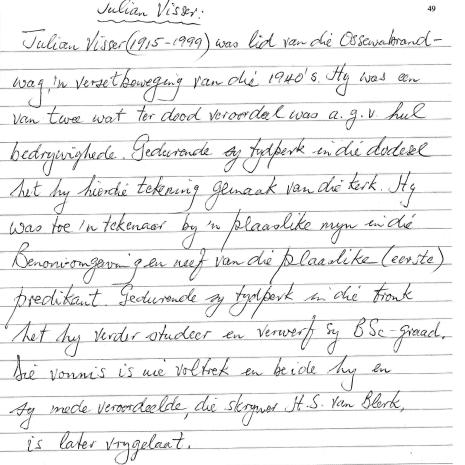 49
Julian Visser:
Julian Visser (1915-1999) was lid van die Ossewabrand-
wag, 'n versetbeweging van die 1940's. Hy was een
van twee wat ter dood veroordeel was a.g.v hul
bedrywighede. Gedurende sy tydperk in die dodesel
het hy hierdie tekening gemaak van die kerk. Hy
was toe 'n tekenaar by 'n plaaslike myn in die
Benoni-omgewing en neef van die plaaslike (eerste)
predikant. Gedurende sy tydperk in die tronk
het hy verder studeer en verwerf sy BSc-graad.
Die vonnis is nie voltrek en beide hy en
sy mede veroordeelde, die skrywer H.S. van Blerk,
is later vrygelaat.